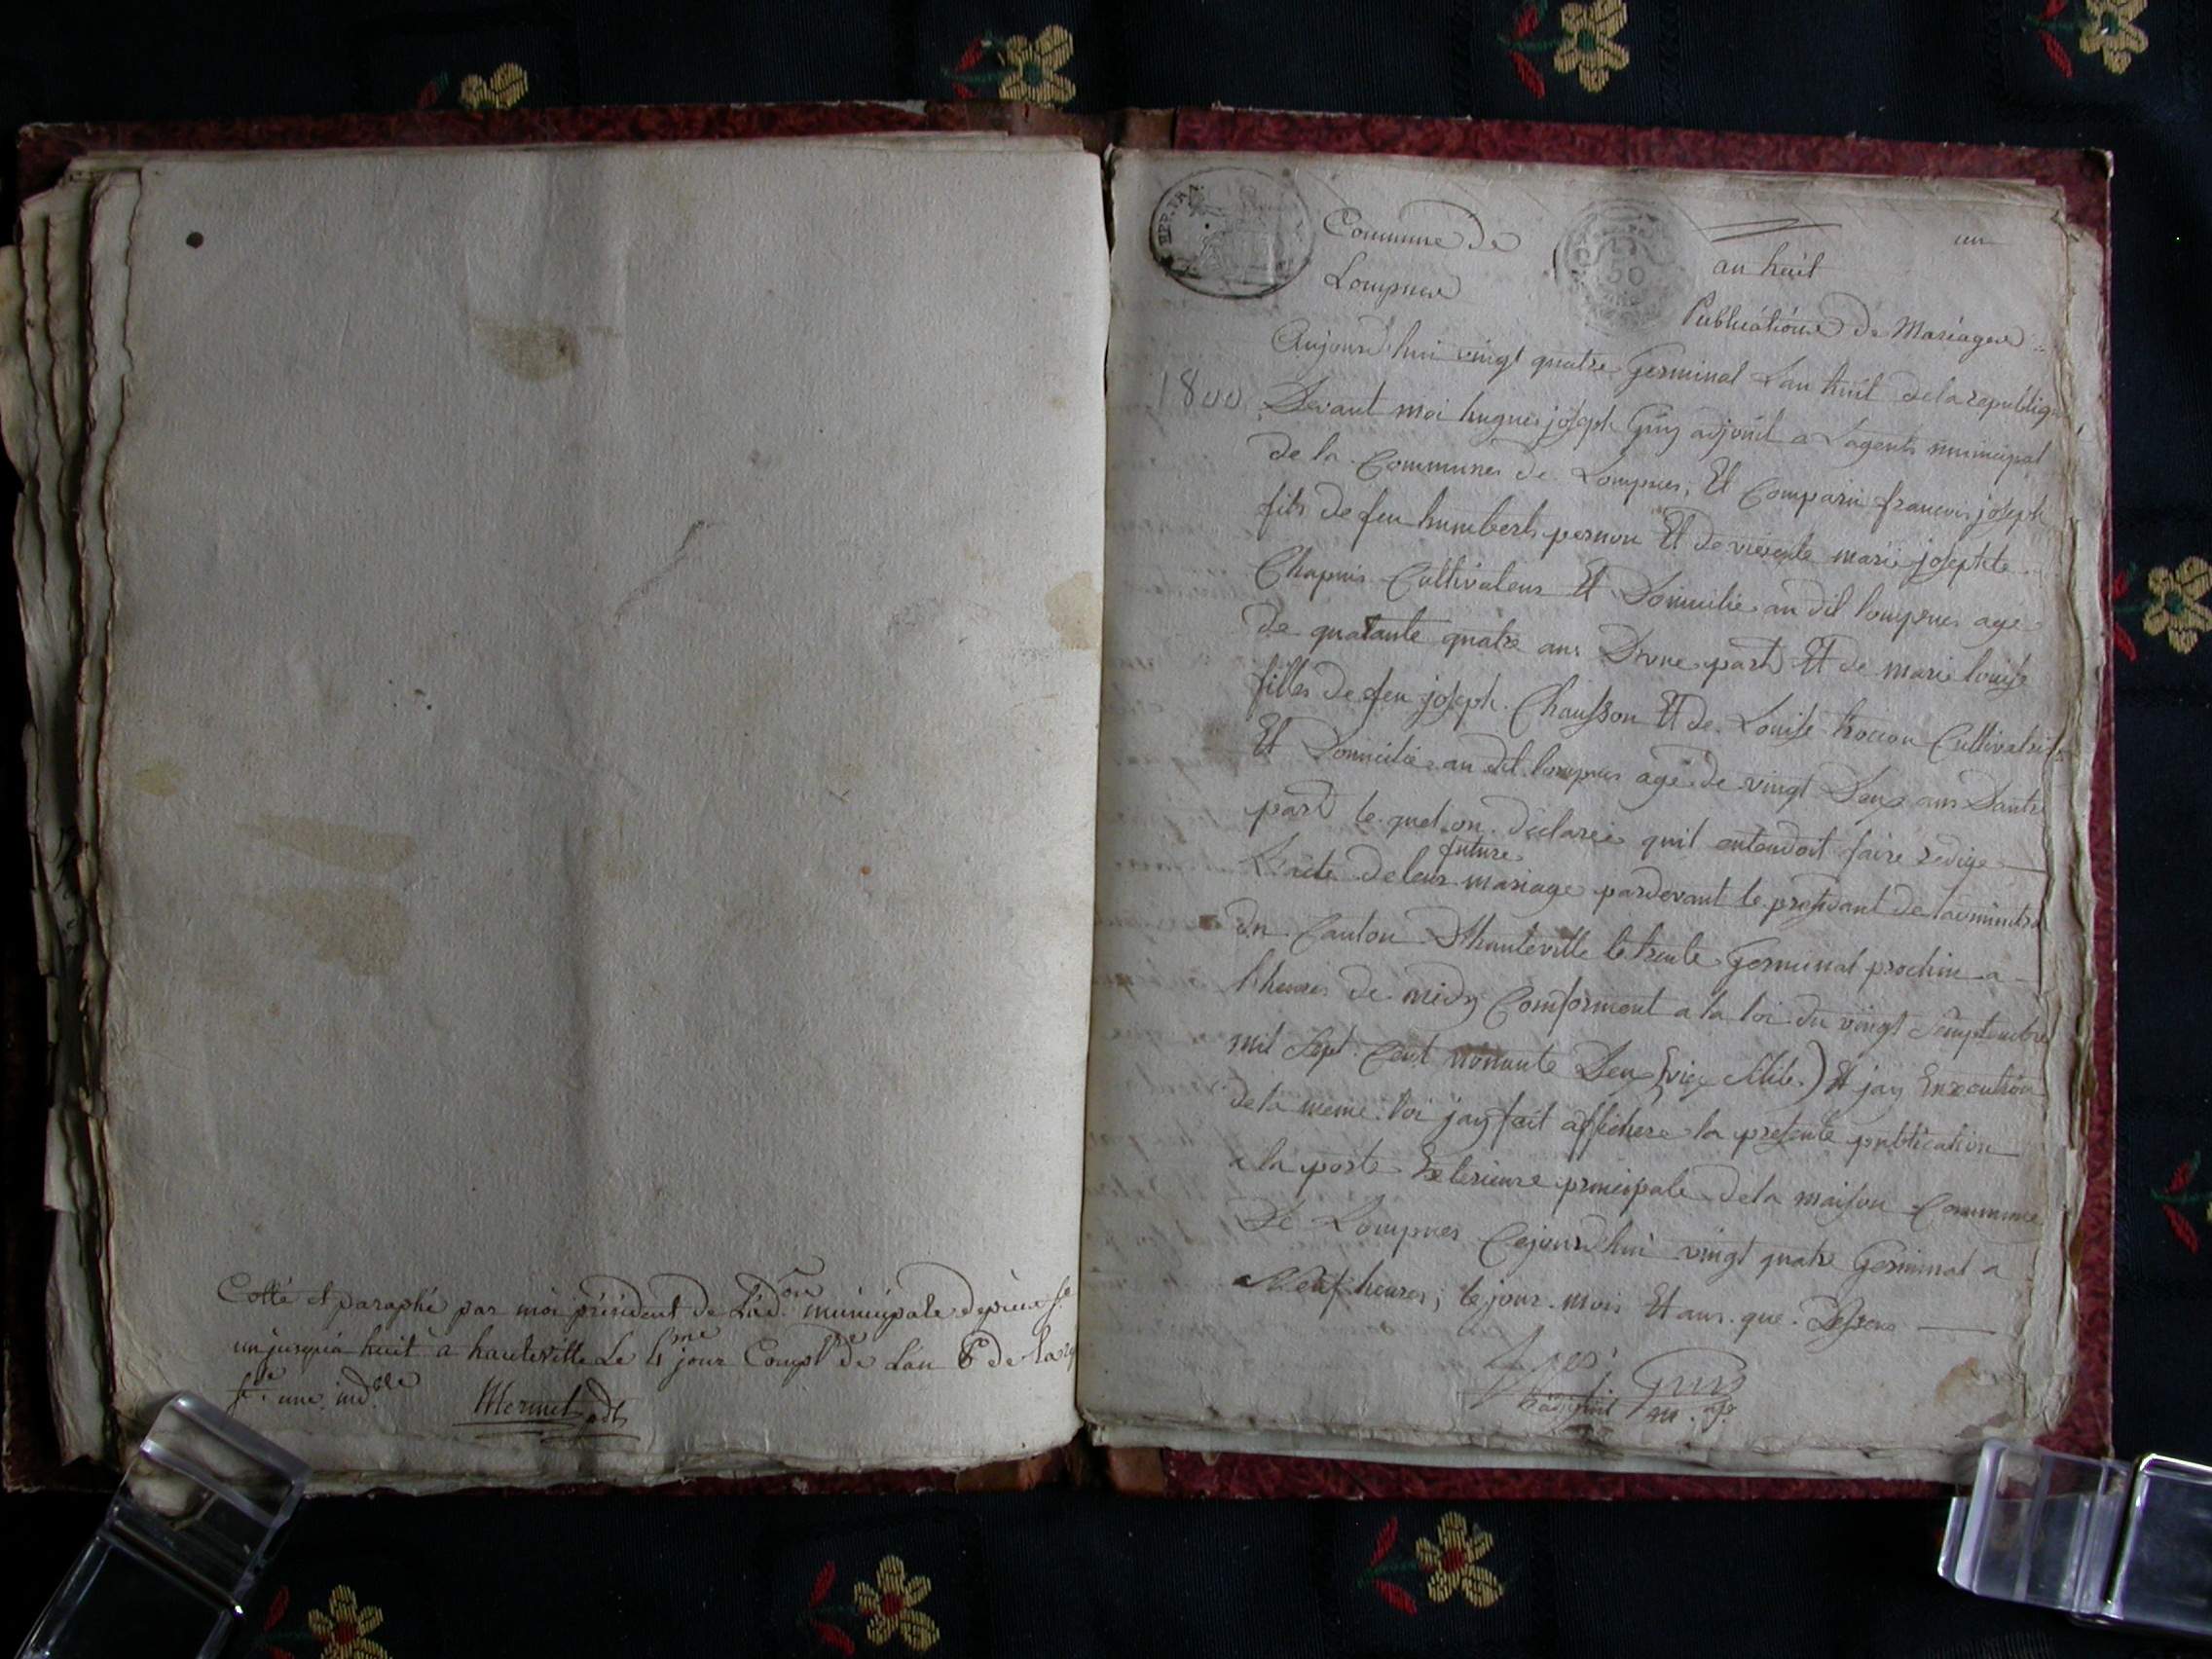 Cotté et paraphé par moi président de L'ad.on municipale depuis f.e
un jusqu'a huit à hauteville Le 4me jour Compl.re de Lan 6 de la
f.se une ind.ble
Mermet pdt
REP. FRA.
Commune de
un
50
an huit
Lompnes
Publications de Mariages
Aujourd'hui vingt quatre Germinal Lan huit de la republique
1800
Devant moi hugues joseph Guy adjoint a Lagents municipal
de la Communes de Lompnes, Et Comparu francois joseph
fils de feu humberts pernon Et de vivente marie josephte
Chapuis Cultivateur Et Domicilie au dit lompnes age
de quatante quatre ans Dune part Et de marie louise
filles de feu joseph Chausson Et de Louise trocion Cultivatrice
Et Domicilie au dit lompnes age de vingt Deux ans Dautre
part le quel on declaree quil entendoit faire redige
future
L'acte de leur mariage pardevant le president de ladministra
du Canton Dhauteville le trente Germinal prochin a
lheures de midy Comforment a la loi du vingt Semptembre
mil Sept Cent nonante Deu (viex Stile.) Et jay Enxcution
de la meme loi jay fait affichere la presente publication
a la porte Exterieure principale de la maison Commune
De Lompnes Cejourdhui vingt quatre Germinal a
Neuf heures, le jour mois Et ans que Dessus
Guy